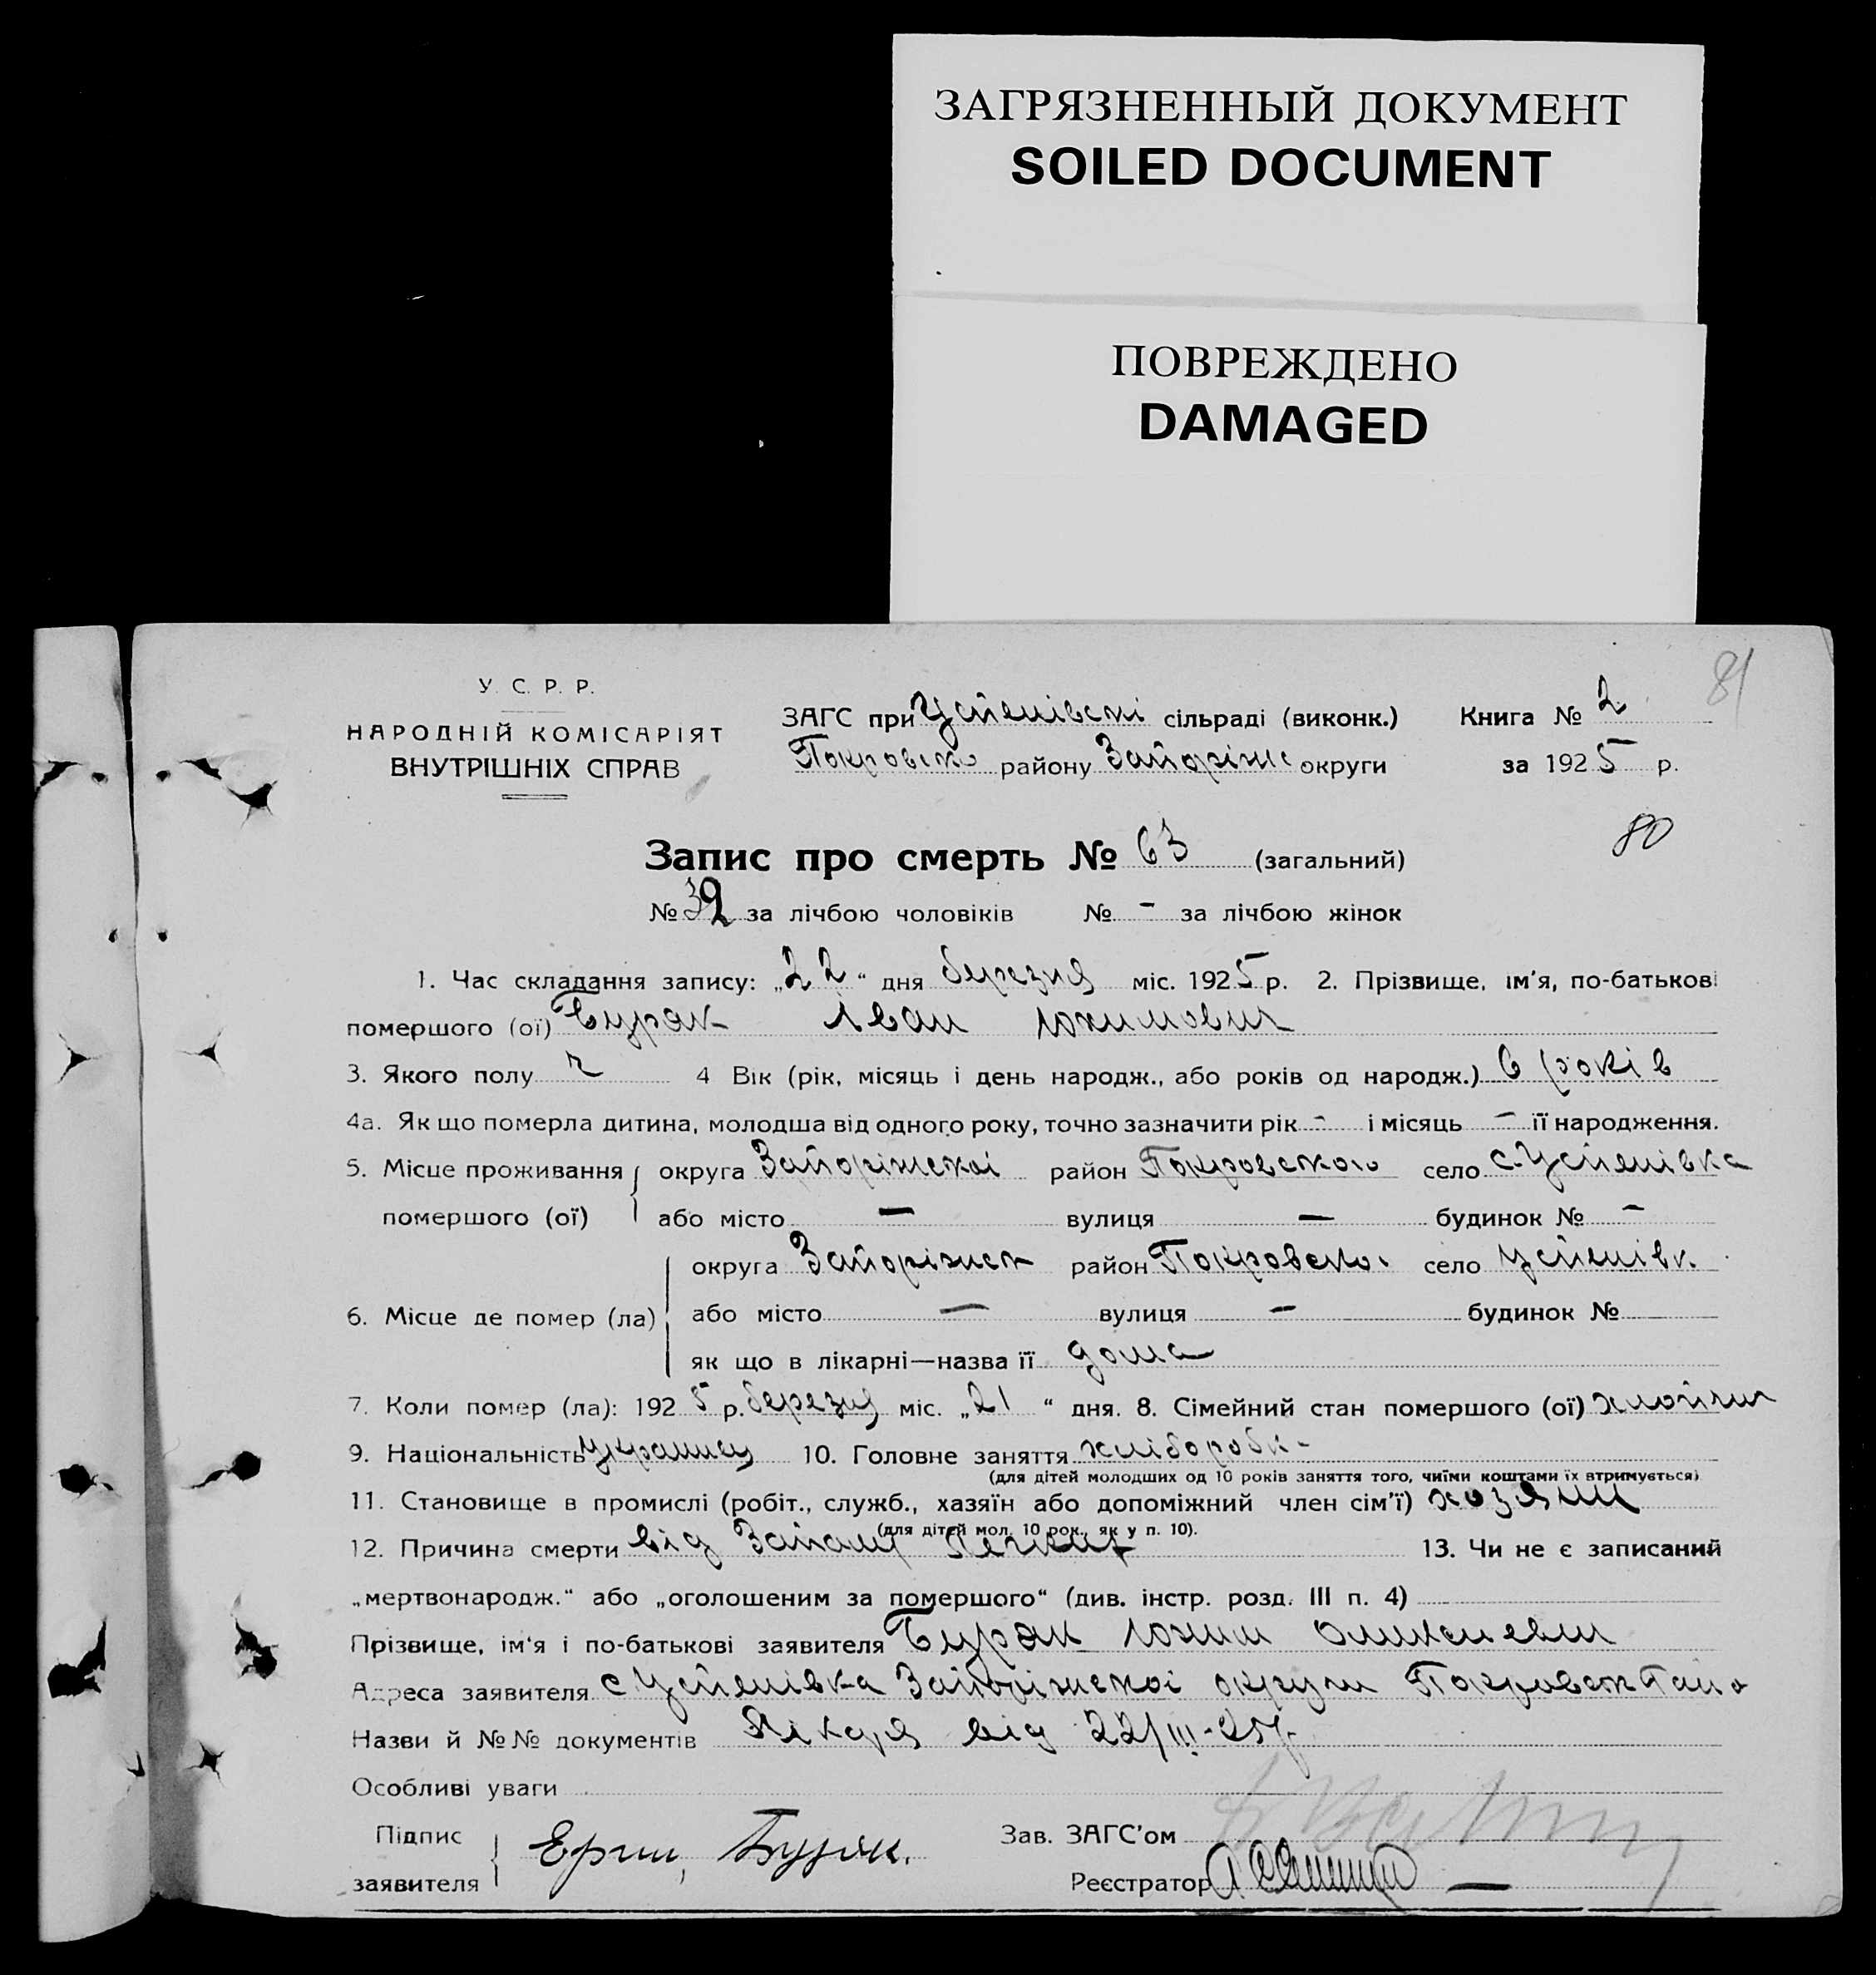 ЗАГРЯЗНЕННЫЙ ДОКУМЕНТ
SOILED DOCUMENT
ПОВРЕЖДЕНО
DAMAGED
81
У. С. Р. Р.
НАРОДНІЙ КОМІСАРІЯТ
ВНУТРІШНІХ СПРАВ
ЗАГС при Успенівскі сільраді (виконк.) Книга № 2
Покровско району Запоріжс округи за 1925 р.
80
Запис про смерть № 63 (загальний)
№ 39 за лічбою чоловіків № - за лічбою жінок
1. Час складання запису: „22“ дня березня міс. 1925 р. 2. Прізвище, ім'я, по-батькові
помершого (ої) Буряк Іван Юхимович
3. Якого полу ч 4 Вік (рік, місяць і день народж., або років од народж.) 6 років
4а. Як що померла дитина, молодша від одного року, точно зазначити рік - і місяць - її народження.
5. Місце проживання округа Запоріжскоі район Покровского село с. Успенівка
помершого (ої) або місто — вулиця — будинок № —
округа Запоріжск район Покровско село Успенівк.
6. Місце де помер (ла) або місто — вулиця — будинок №
як що в лікарні—назва її дома
7. Коли помер (ла): 1925 р. березня міс. „21“ дня. 8. Сімейний стан помершого (ої) хлопчик
9. Національність Украинец 10. Головне заняття хлібороб
(для дітей молодших од 10 років заняття того, чиїми коштами їх втримується)
11. Становище в промислі (робіт., служб., хазяїн або допоміжний член сім'ї) хозяин
(для дітей мол. 10 рок., як у п. 10).
12. Причина смерти від Запалу Легких 13. Чи не є записаний
„мертвонародж.“ або „оголошеним за помершого“ (див. інстр. розд. III п. 4)
Прізвище, ім'я і по-батькові заявителя Буряк Юхим
Адреса заявителя с Успенівка Запоріжскоі округи Покровск
Назви й №№ документів Лікаря від 22/III-25р.
Особливі уваги
Підпис Зав. ЗАГС'ом
Буряк.
заявителя Реєстратор